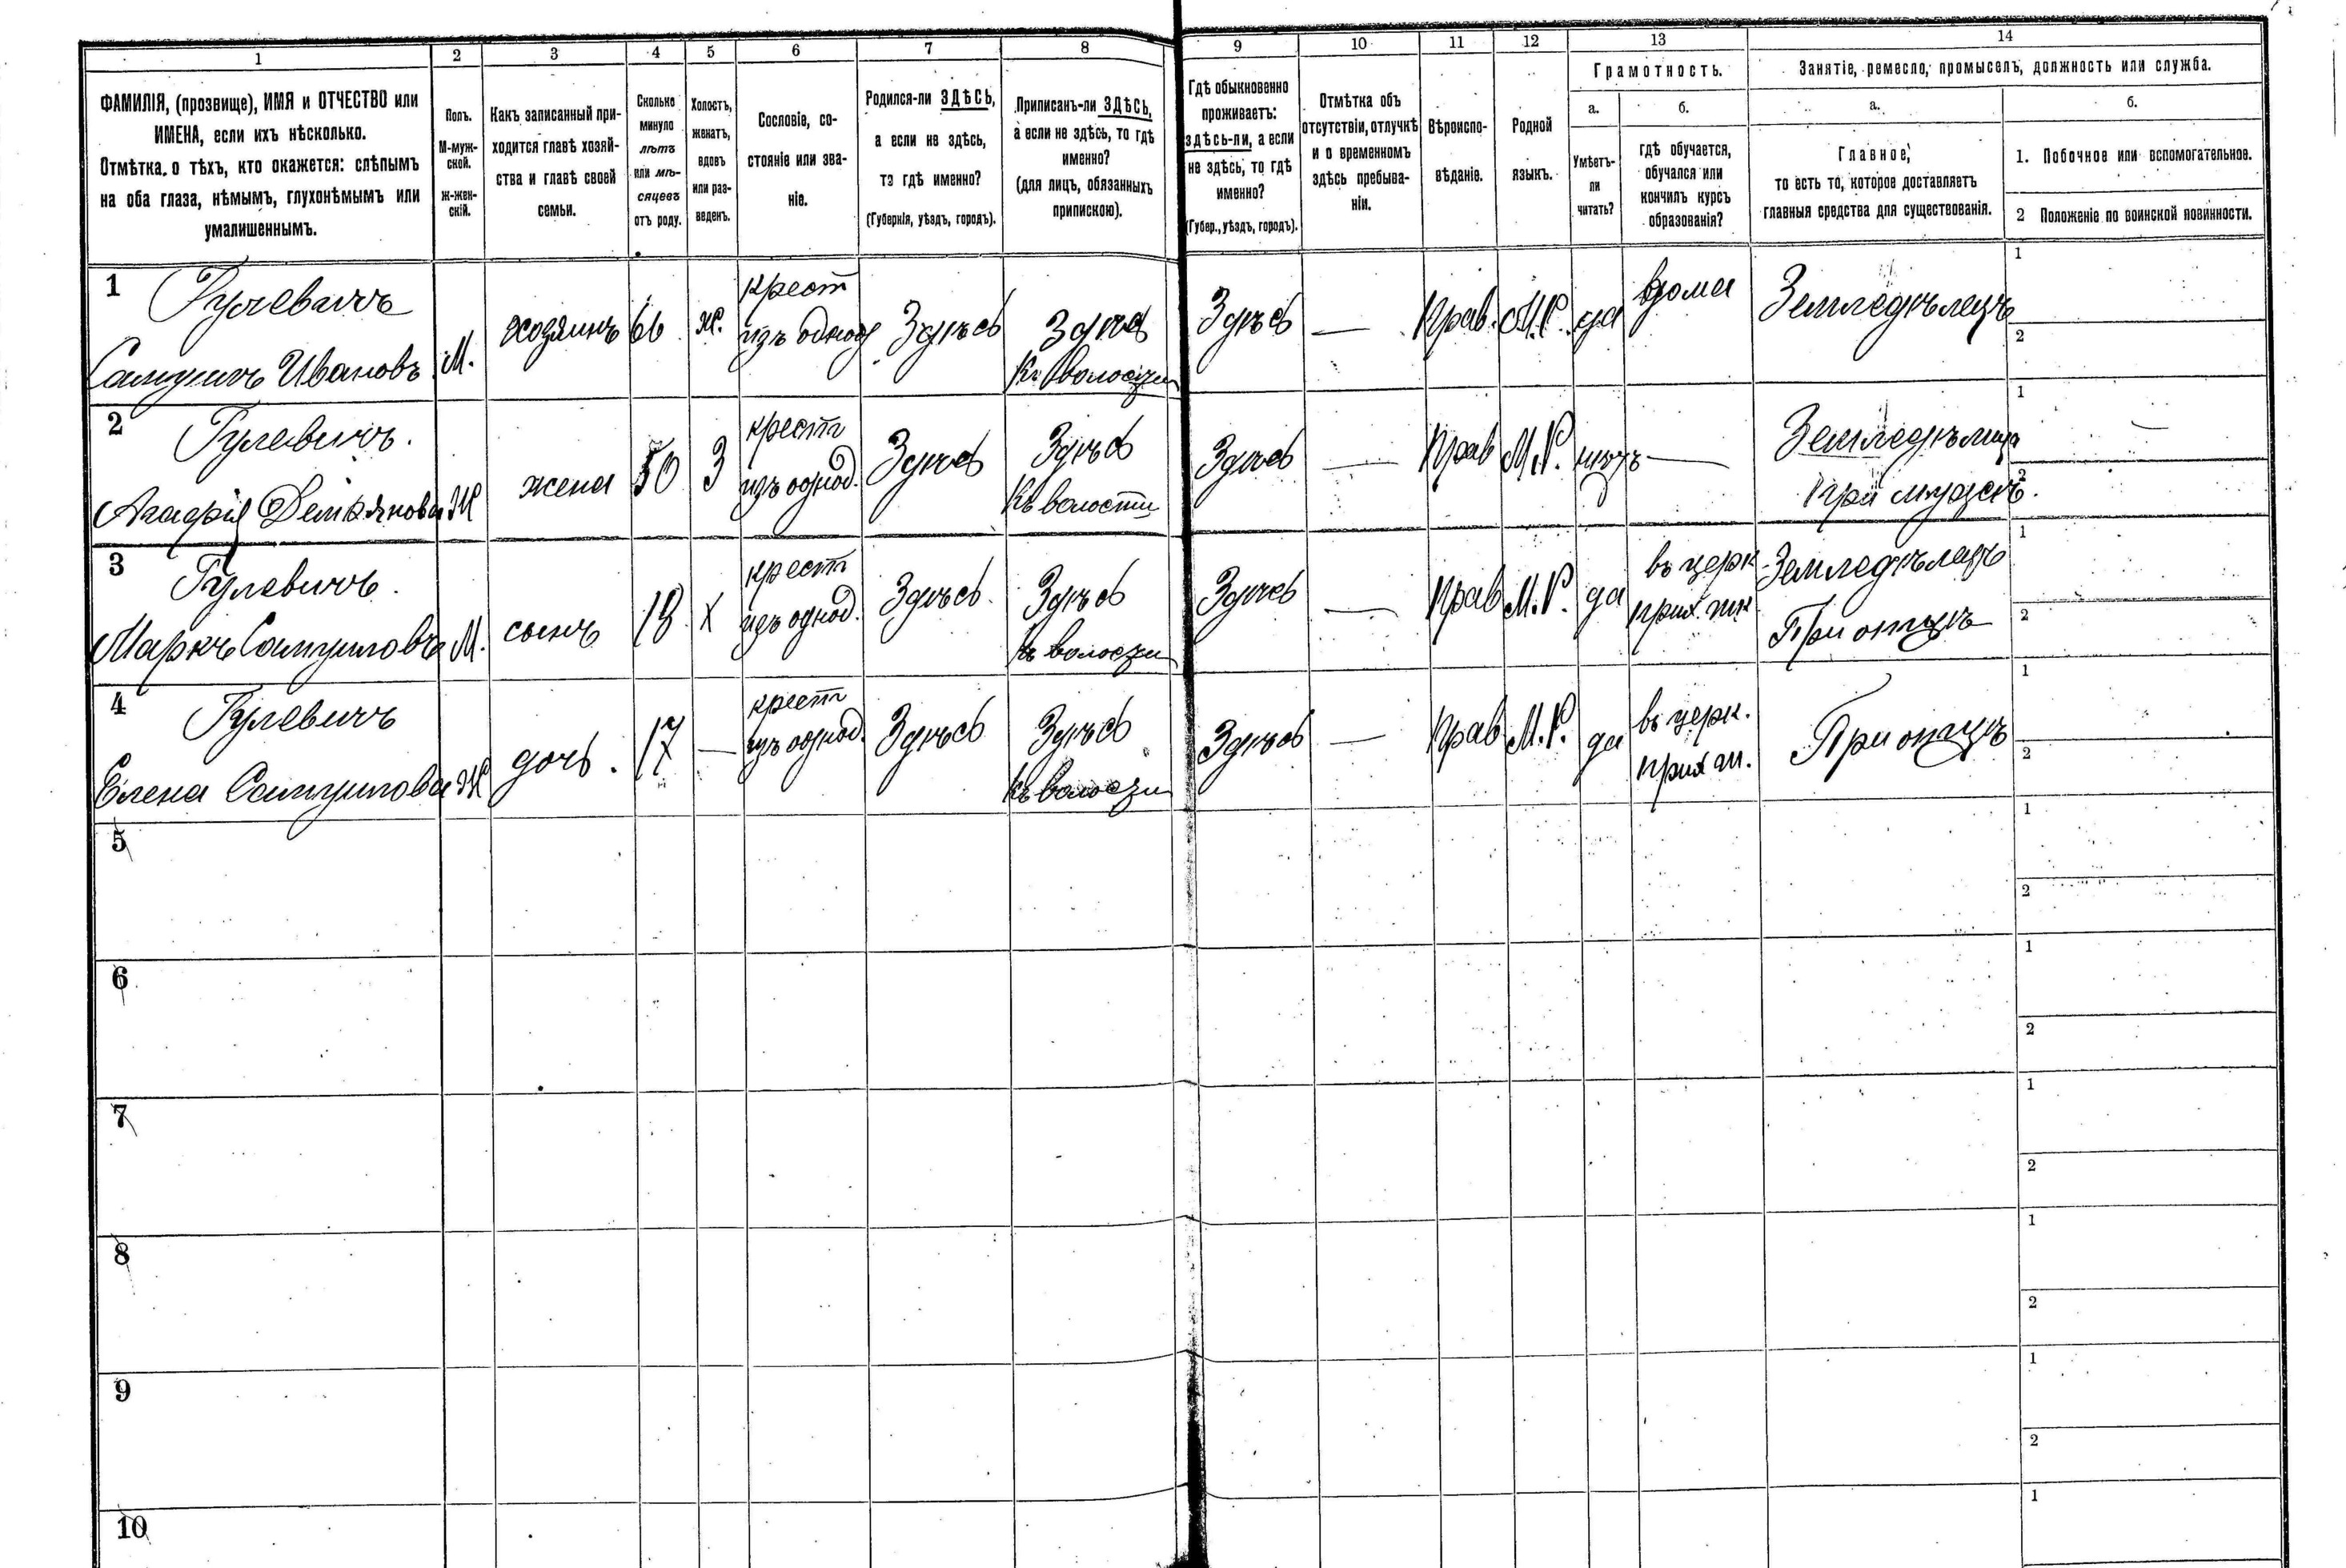 1 2 3 4 5 6 7 8 9 10 11 12 13 14
ФАМИЛІЯ, (прозвище), ИМЯ и ОТЧЕСТВО или
ИМЕНА, если ихъ нѣсколько.
Отмѣтка о тѣхъ, кто окажется: слѣпымъ
на оба глаза, нѣмымъ, глухонѣмымъ или
умалишеннымъ.
Полъ.
М-муж-
ской.
ж-жен-
скій.
Какъ записанный при-
ходится главѣ хозяй-
ства и главѣ своей
семьи.
Сколько
минуло
лѣтъ
или мѣ-
сяцевъ
отъ роду.
Холостъ,
женатъ,
вдовъ
или раз-
веденъ.
Сословіе, со-
стояніе или зва-
ніе.
Родился-ли ЗДѢСЬ,
а если не здѣсь,
то гдѣ именно?
(Губернія, уѣздъ, городъ).
Приписанъ-ли ЗДѢСЬ,
а если не здѣсь, то гдѣ
именно?
(для лицъ, обязанныхъ
припискою).
Гдѣ обыкновенно
проживаетъ:
здѣсь-ли, а если
не здѣсь, то гдѣ
именно?
(Губер., уѣздъ, городъ).
Отмѣтка объ
отсутствіи, отлучкѣ
и о временномъ
здѣсь пребыва-
ніи.
Вѣроиспо-
вѣданіе.
Родной
языкъ.
Грамотность.
а.
Умѣетъ-
ли
читать?
б.
гдѣ обучается,
обучался или
кончилъ курсъ
образованія?
Занятіе, ремесло, промыселъ, должность или служба.
а.
Главное,
то есть то, которое доставляетъ
главныя средства для существованія.
б.
1. Побочное или вспомогательное.
2 Положеніе по воинской повинности.
1 Гулевичъ
Самуилъ Ивановъ М. хозяинъ 66 ж. крест
изъ однод Здѣсь Здѣсь
Къ волости Здѣсь — Прав. М.Р. да вдома Земледѣлецъ 1
2
2 Гулевичъ.
Агафія Демьянова Ж жена 50 З крест
изъ однод. Здѣсь Здѣсь
Къ волости Здѣсь — Прав М.Р. нѣтъ — Земледѣлица
При мужѣ. 1 —
2
3 Гулевичъ.
Маркъ Самуиловъ М. сынъ 18 Х крест
изъ однод. Здѣсь Здѣсь
Къ волости Здѣсь — Прав М.Р. да въ церк
прих. шк Земледѣлецъ
При отцѣ 1
2
4 Гулевичъ
Елена Самуилова Ж дочь. 17 — крест
изъ однод. Здѣсь Здѣсь
Къ волости Здѣсь — Прав М.Р. да въ церк.
прих ш. При отцѣ 1
2
5 1
2
6 1
2
7 1
2
8 1
2
9 1
2
10 1